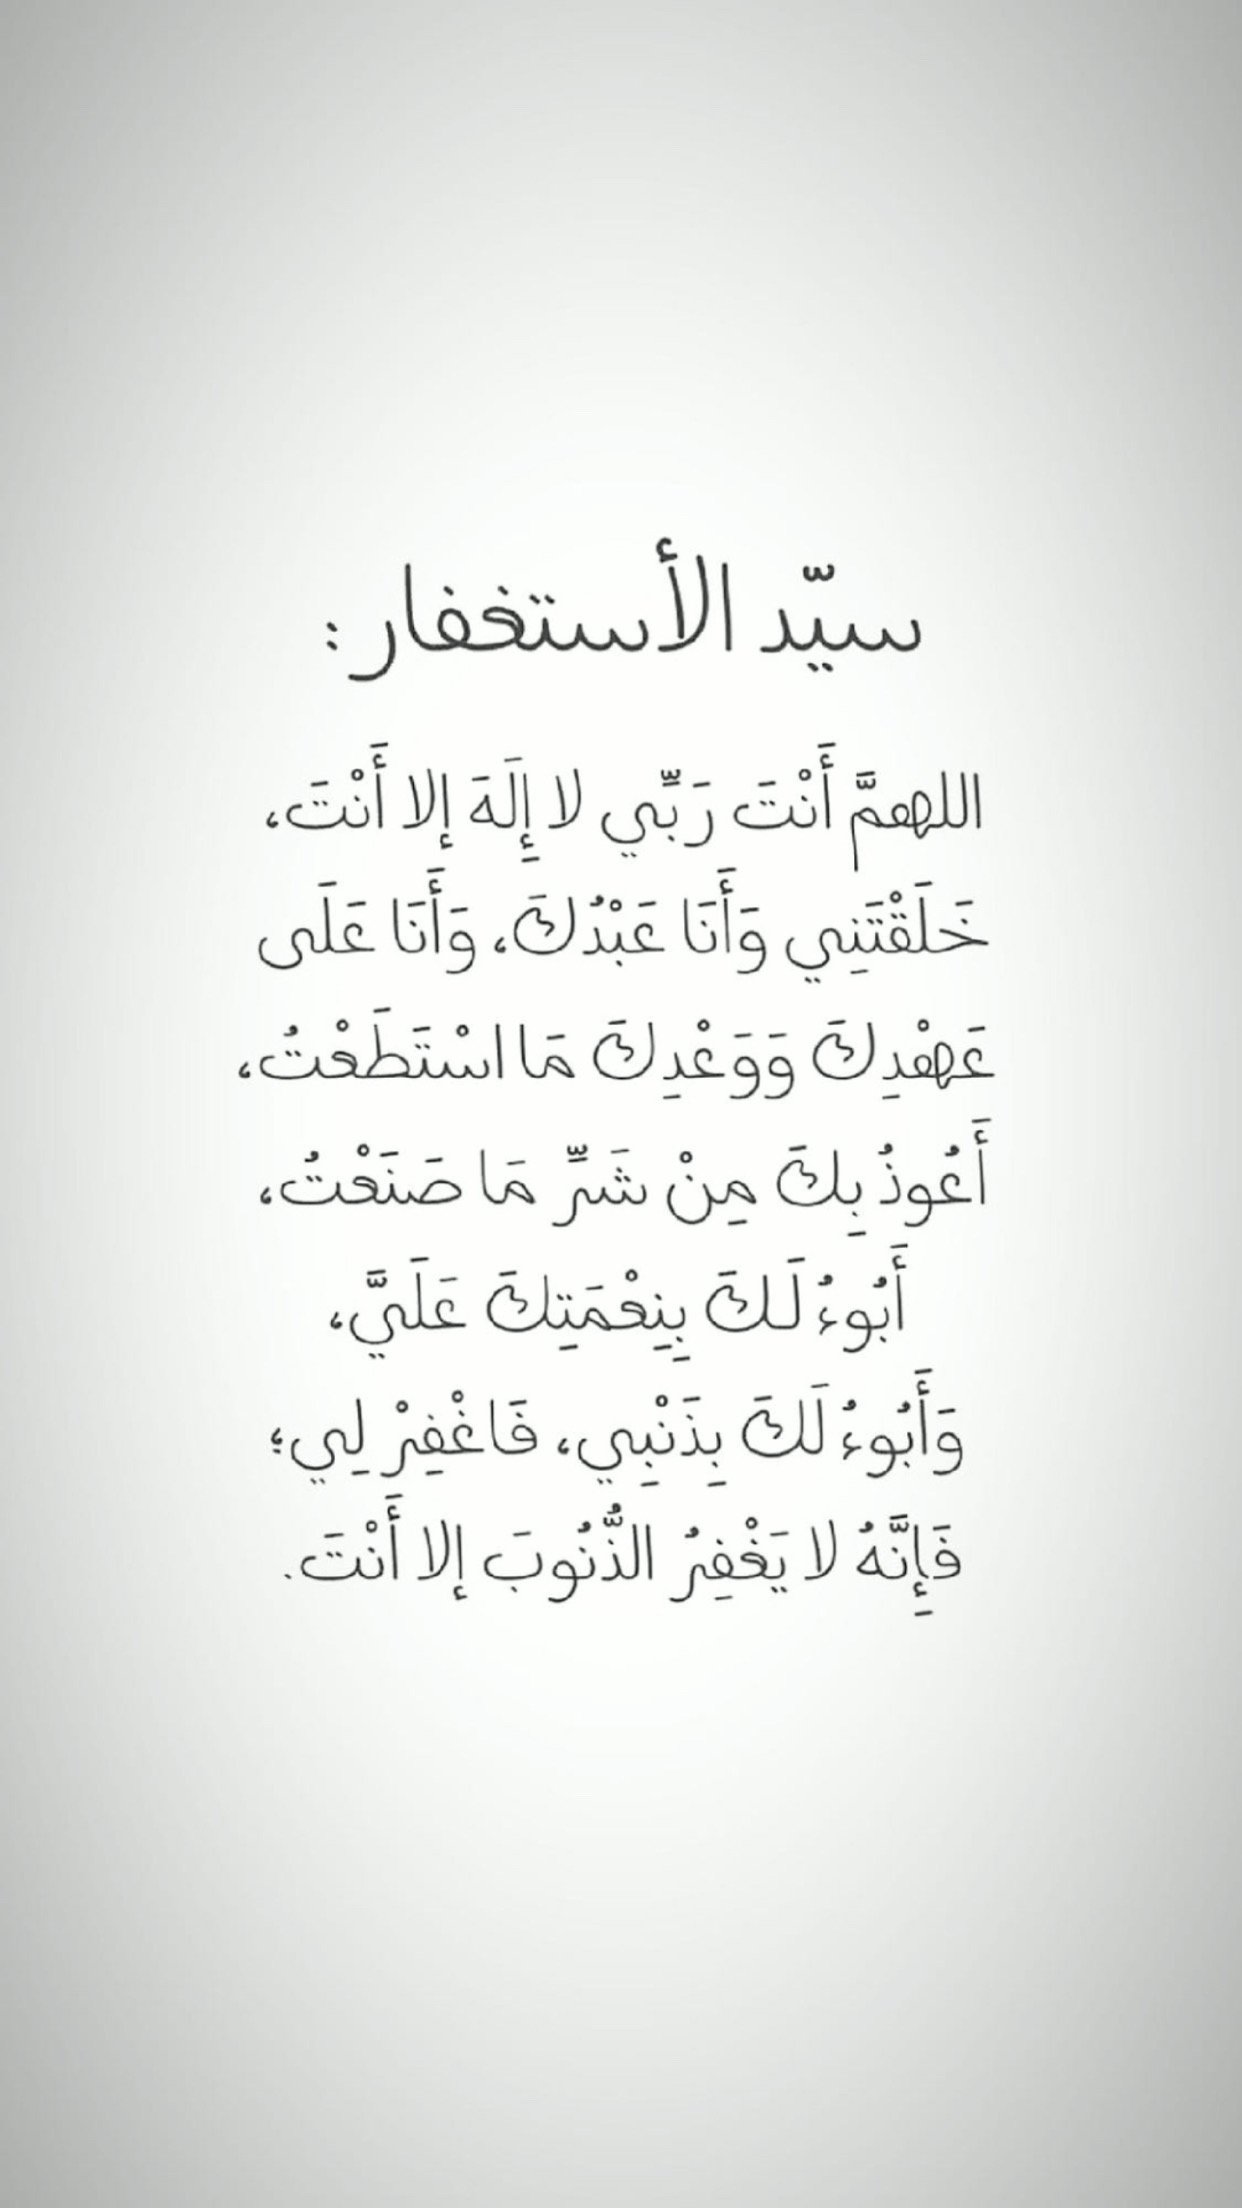 سيّد الأستغفار :
اللهمَّ أَنْتَ رَبِّي لا إِلَهَ إلا أَنْتَ،
خَلَقْتَنِي وَأَنَا عَبْدُكَ، وَأَنَا عَلَى
عَهْدِكَ وَوَعْدِكَ مَا اسْتَطَعْتُ،
أَعُوذُ بِكَ مِنْ شَرِّ مَا صَنَعْتُ،
أَبُوءُ لَكَ بِنِعْمَتِكَ عَلَيَّ،
وَأَبُوءُ لَكَ بِذَنْبِي، فَاغْفِرْ لِي؛
فَإِنَّهُ لا يَغْفِرُ الذُّنُوبَ إلا أَنْتَ.